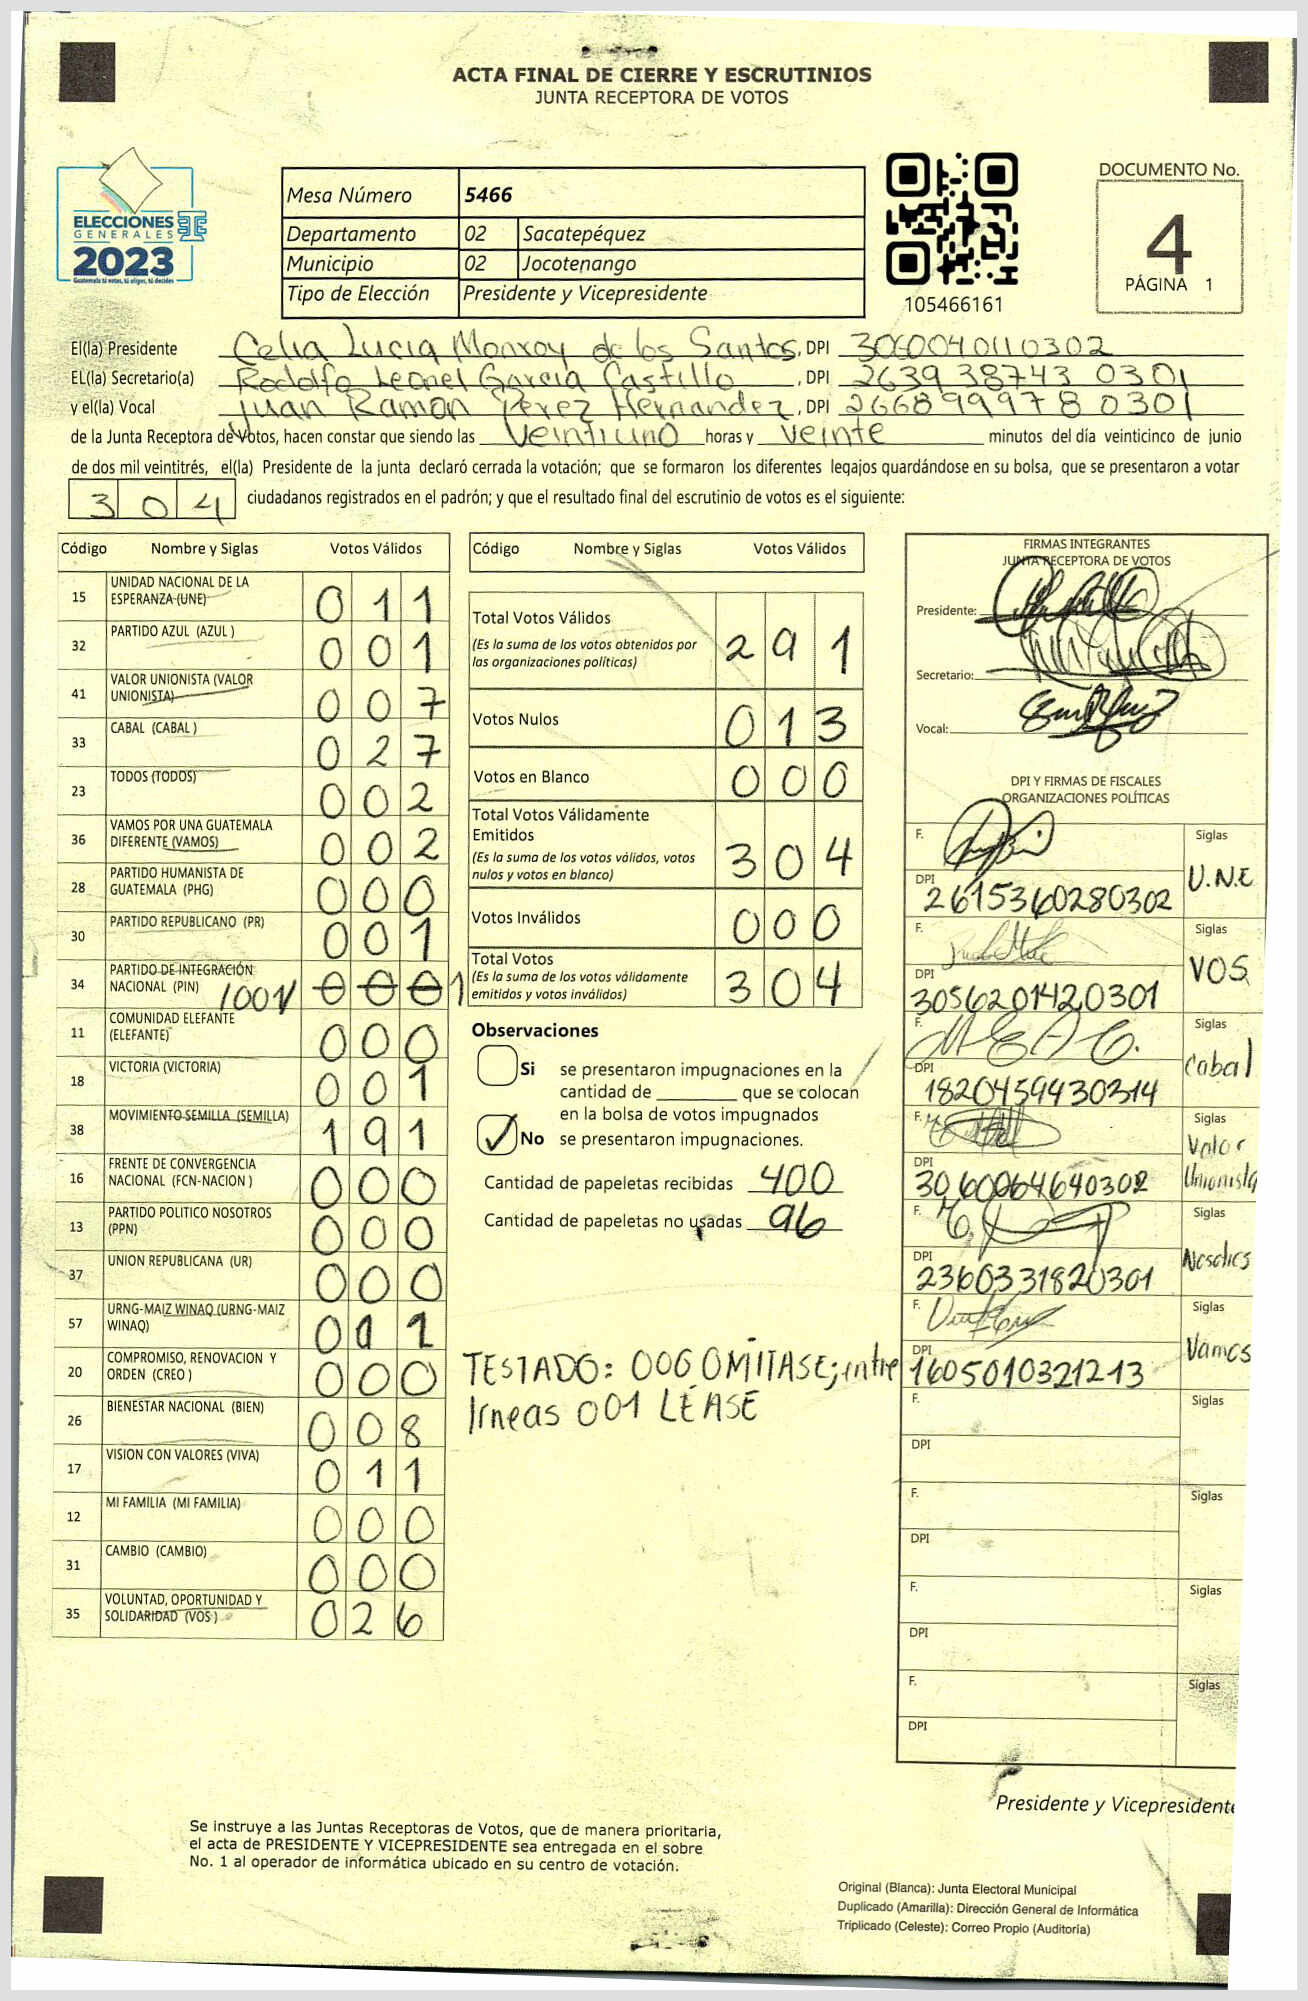 ACTA FINAL DE CIERRE Y ESCRUTINIOS
JUNTA RECEPTORA DE VOTOS
ELECCIONES
GENERALES
2023
Guatemala tú votas, tú eliges, tú decides
Mesa Número 5466
Departamento 02 Sacatepéquez
Municipio 02 Jocotenango
Tipo de Elección Presidente y Vicepresidente
105466161
DOCUMENTO No.
4
PÁGINA 1
El(la) Presidente Celia Lucia Monroy de los Santos, DPI 3060040110302
EL(la) Secretario(a) Rodolfo Leonel Garcia Castillo, DPI 2639 38743 0301
y el(la) Vocal Juan Ramon Perez Hernandez, DPI 2668 99978 0301
de la Junta Receptora de Votos, hacen constar que siendo las Veintiuno horas y veinte minutos del día veinticinco de junio
de dos mil veintitrés, el(la) Presidente de la junta declaró cerrada la votación; que se formaron los diferentes legajos quardándose en su bolsa, que se presentaron a votar
304 ciudadanos registrados en el padrón; y que el resultado final del escrutinio de votos es el siguiente:
Código Nombre y Siglas Votos Válidos
15 UNIDAD NACIONAL DE LA ESPERANZA (UNE) 011
32 PARTIDO AZUL (AZUL ) 001
41 VALOR UNIONISTA (VALOR UNIONISTA) 007
33 CABAL (CABAL ) 027
23 TODOS (TODOS) 002
36 VAMOS POR UNA GUATEMALA DIFERENTE (VAMOS) 002
28 PARTIDO HUMANISTA DE GUATEMALA (PHG) 000
30 PARTIDO REPUBLICANO (PR) 001
34 PARTIDO DE INTEGRACIÓN NACIONAL (PIN) 1001/ 000 1
11 COMUNIDAD ELEFANTE (ELEFANTE) 000
18 VICTORIA (VICTORIA) 001
38 MOVIMIENTO SEMILLA (SEMILLA) 191
16 FRENTE DE CONVERGENCIA NACIONAL (FCN-NACION ) 000
13 PARTIDO POLITICO NOSOTROS (PPN) 000
37 UNION REPUBLICANA (UR) 000
57 URNG-MAIZ WINAQ (URNG-MAIZ WINAQ) 011
20 COMPROMISO, RENOVACION Y ORDEN (CREO ) 000
26 BIENESTAR NACIONAL (BIEN) 008
17 VISION CON VALORES (VIVA) 011
12 MI FAMILIA (MI FAMILIA) 000
31 CAMBIO (CAMBIO) 000
35 VOLUNTAD, OPORTUNIDAD Y SOLIDARIDAD (VOS ) 026
Código Nombre y Siglas Votos Válidos
Total Votos Válidos 291
(Es la suma de los votos obtenidos por
las organizaciones políticas)
Votos Nulos 013
Votos en Blanco 000
Total Votos Válidamente
Emitidos 304
(Es la suma de los votos válidos, votos
nulos y votos en blanco)
Votos Inválidos 000
Total Votos 304
(Es la suma de los votos válidamente
emitidos y votos inválidos)
Observaciones
Si se presentaron impugnaciones en la
cantidad de ________ que se colocan
en la bolsa de votos impugnados
No se presentaron impugnaciones.
Cantidad de papeletas recibidas 400
Cantidad de papeletas no usadas 96
TESTADO: 000 OMITASE; entre
lineas 001 LÉASE
FIRMAS INTEGRANTES
JUNTA RECEPTORA DE VOTOS
Presidente:
Secretario:
Vocal:
DPI Y FIRMAS DE FISCALES
ORGANIZACIONES POLÍTICAS
F. Siglas
DPI 2615360280302 U.N.E
F. Siglas
DPI 3056201420301 VOS
F. Siglas
DPI 1820459430314 Cabal
F. Siglas
DPI 3060064640302 Valor Unionista
F. Siglas
DPI 2360331820301 Nosotros
F. Siglas
DPI 1605010321213 Vamos
F. Siglas
DPI
F. Siglas
DPI
F. Siglas
DPI
F. Siglas
DPI
Presidente y Vicepresidente
Se instruye a las Juntas Receptoras de Votos, que de manera prioritaria,
el acta de PRESIDENTE Y VICEPRESIDENTE sea entregada en el sobre
No. 1 al operador de informática ubicado en su centro de votación.
Original (Blanca): Junta Electoral Municipal
Duplicado (Amarilla): Dirección General de Informática
Triplicado (Celeste): Correo Propio (Auditoría)